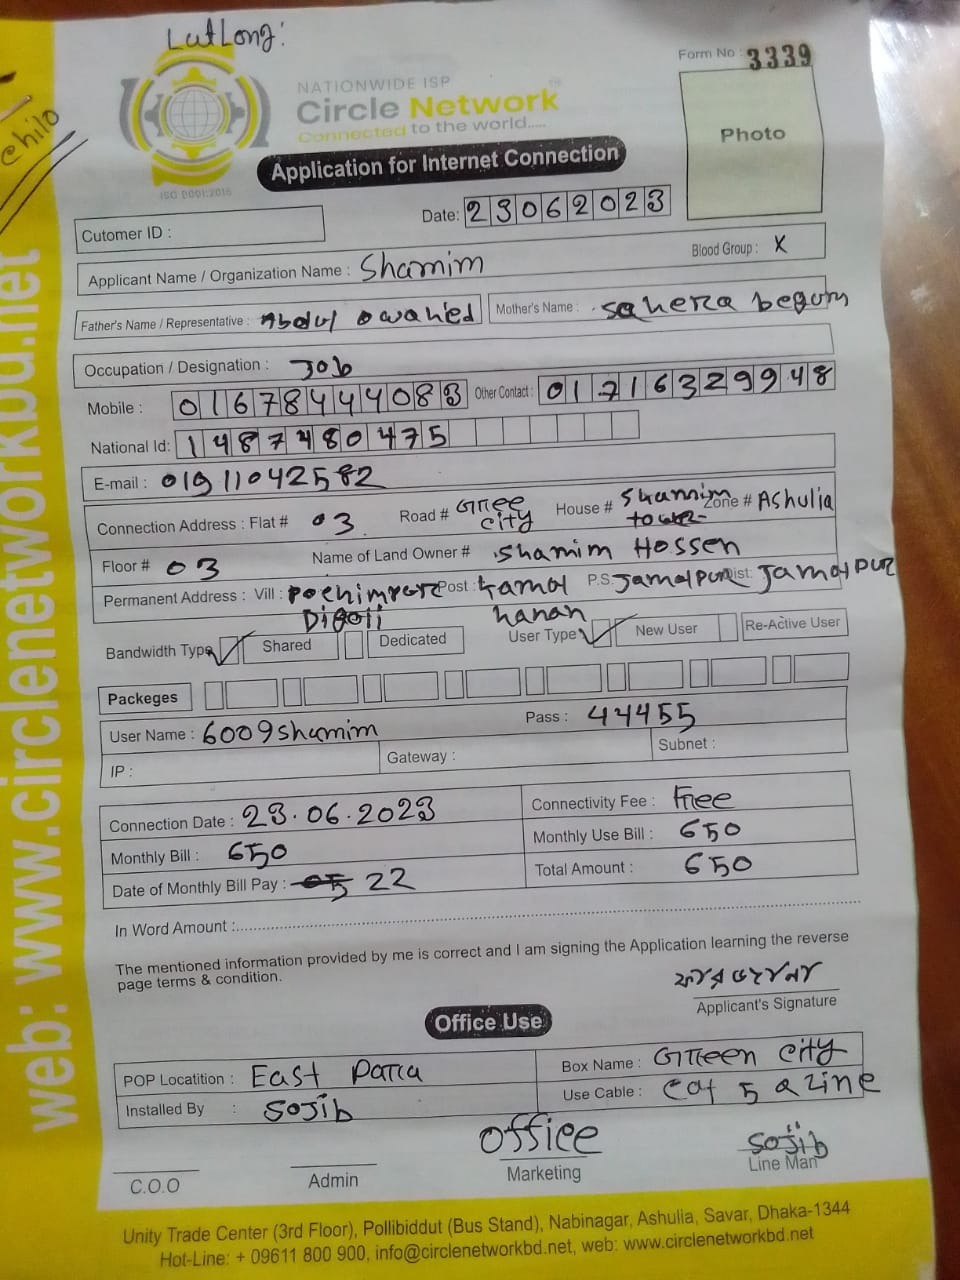 LutLong:
Form No : 3339
NATIONWIDE ISP
Circle Network
Connected to the world.....
ISO 9001:2015
Photo
chilo
Application for Internet Connection
Date: 23062023
Cutomer ID :
Blood Group : X
Applicant Name / Organization Name : Shamim
Father's Name / Representative : Abdul owahed Mother's Name : Sahera begum
Occupation / Designation : Job
Mobile : 01678444083 Other Contact : 01716329948
National Id: 1487480475
E-mail : 01911042582
Connection Address : Flat # 03 Road # Gree city House # Shamim tower Zone # Ashulia
Floor # 03 Name of Land Owner # Shamim Hossen
Permanent Address : Vill : Post : P.S: Jamalpur Dist: Jamalpur
Digoli hanan
Bandwidth Type Shared Dedicated User Type New User Re-Active User
Packeges
User Name : 6009shamim Pass : 44455
IP : Gateway : Subnet :
Connection Date : 23.06.2023 Connectivity Fee : Free
Monthly Bill : 650 Monthly Use Bill : 650
Date of Monthly Bill Pay : 05 22 Total Amount : 650
In Word Amount :
The mentioned information provided by me is correct and I am signing the Application learning the reverse
page terms & condition.
Applicant's Signature
Office Use
POP Locatition : East Para Box Name : Green city
Installed By : Sojib Use Cable : Cat 5 a line
office Sojib
C.O.O Admin Marketing Line Man
Unity Trade Center (3rd Floor), Pollibiddut (Bus Stand), Nabinagar, Ashulia, Savar, Dhaka-1344
Hot-Line: + 09611 800 900, info@circlenetworkbd.net, web: www.circlenetworkbd.net
web: www.circlenetworkbd.net